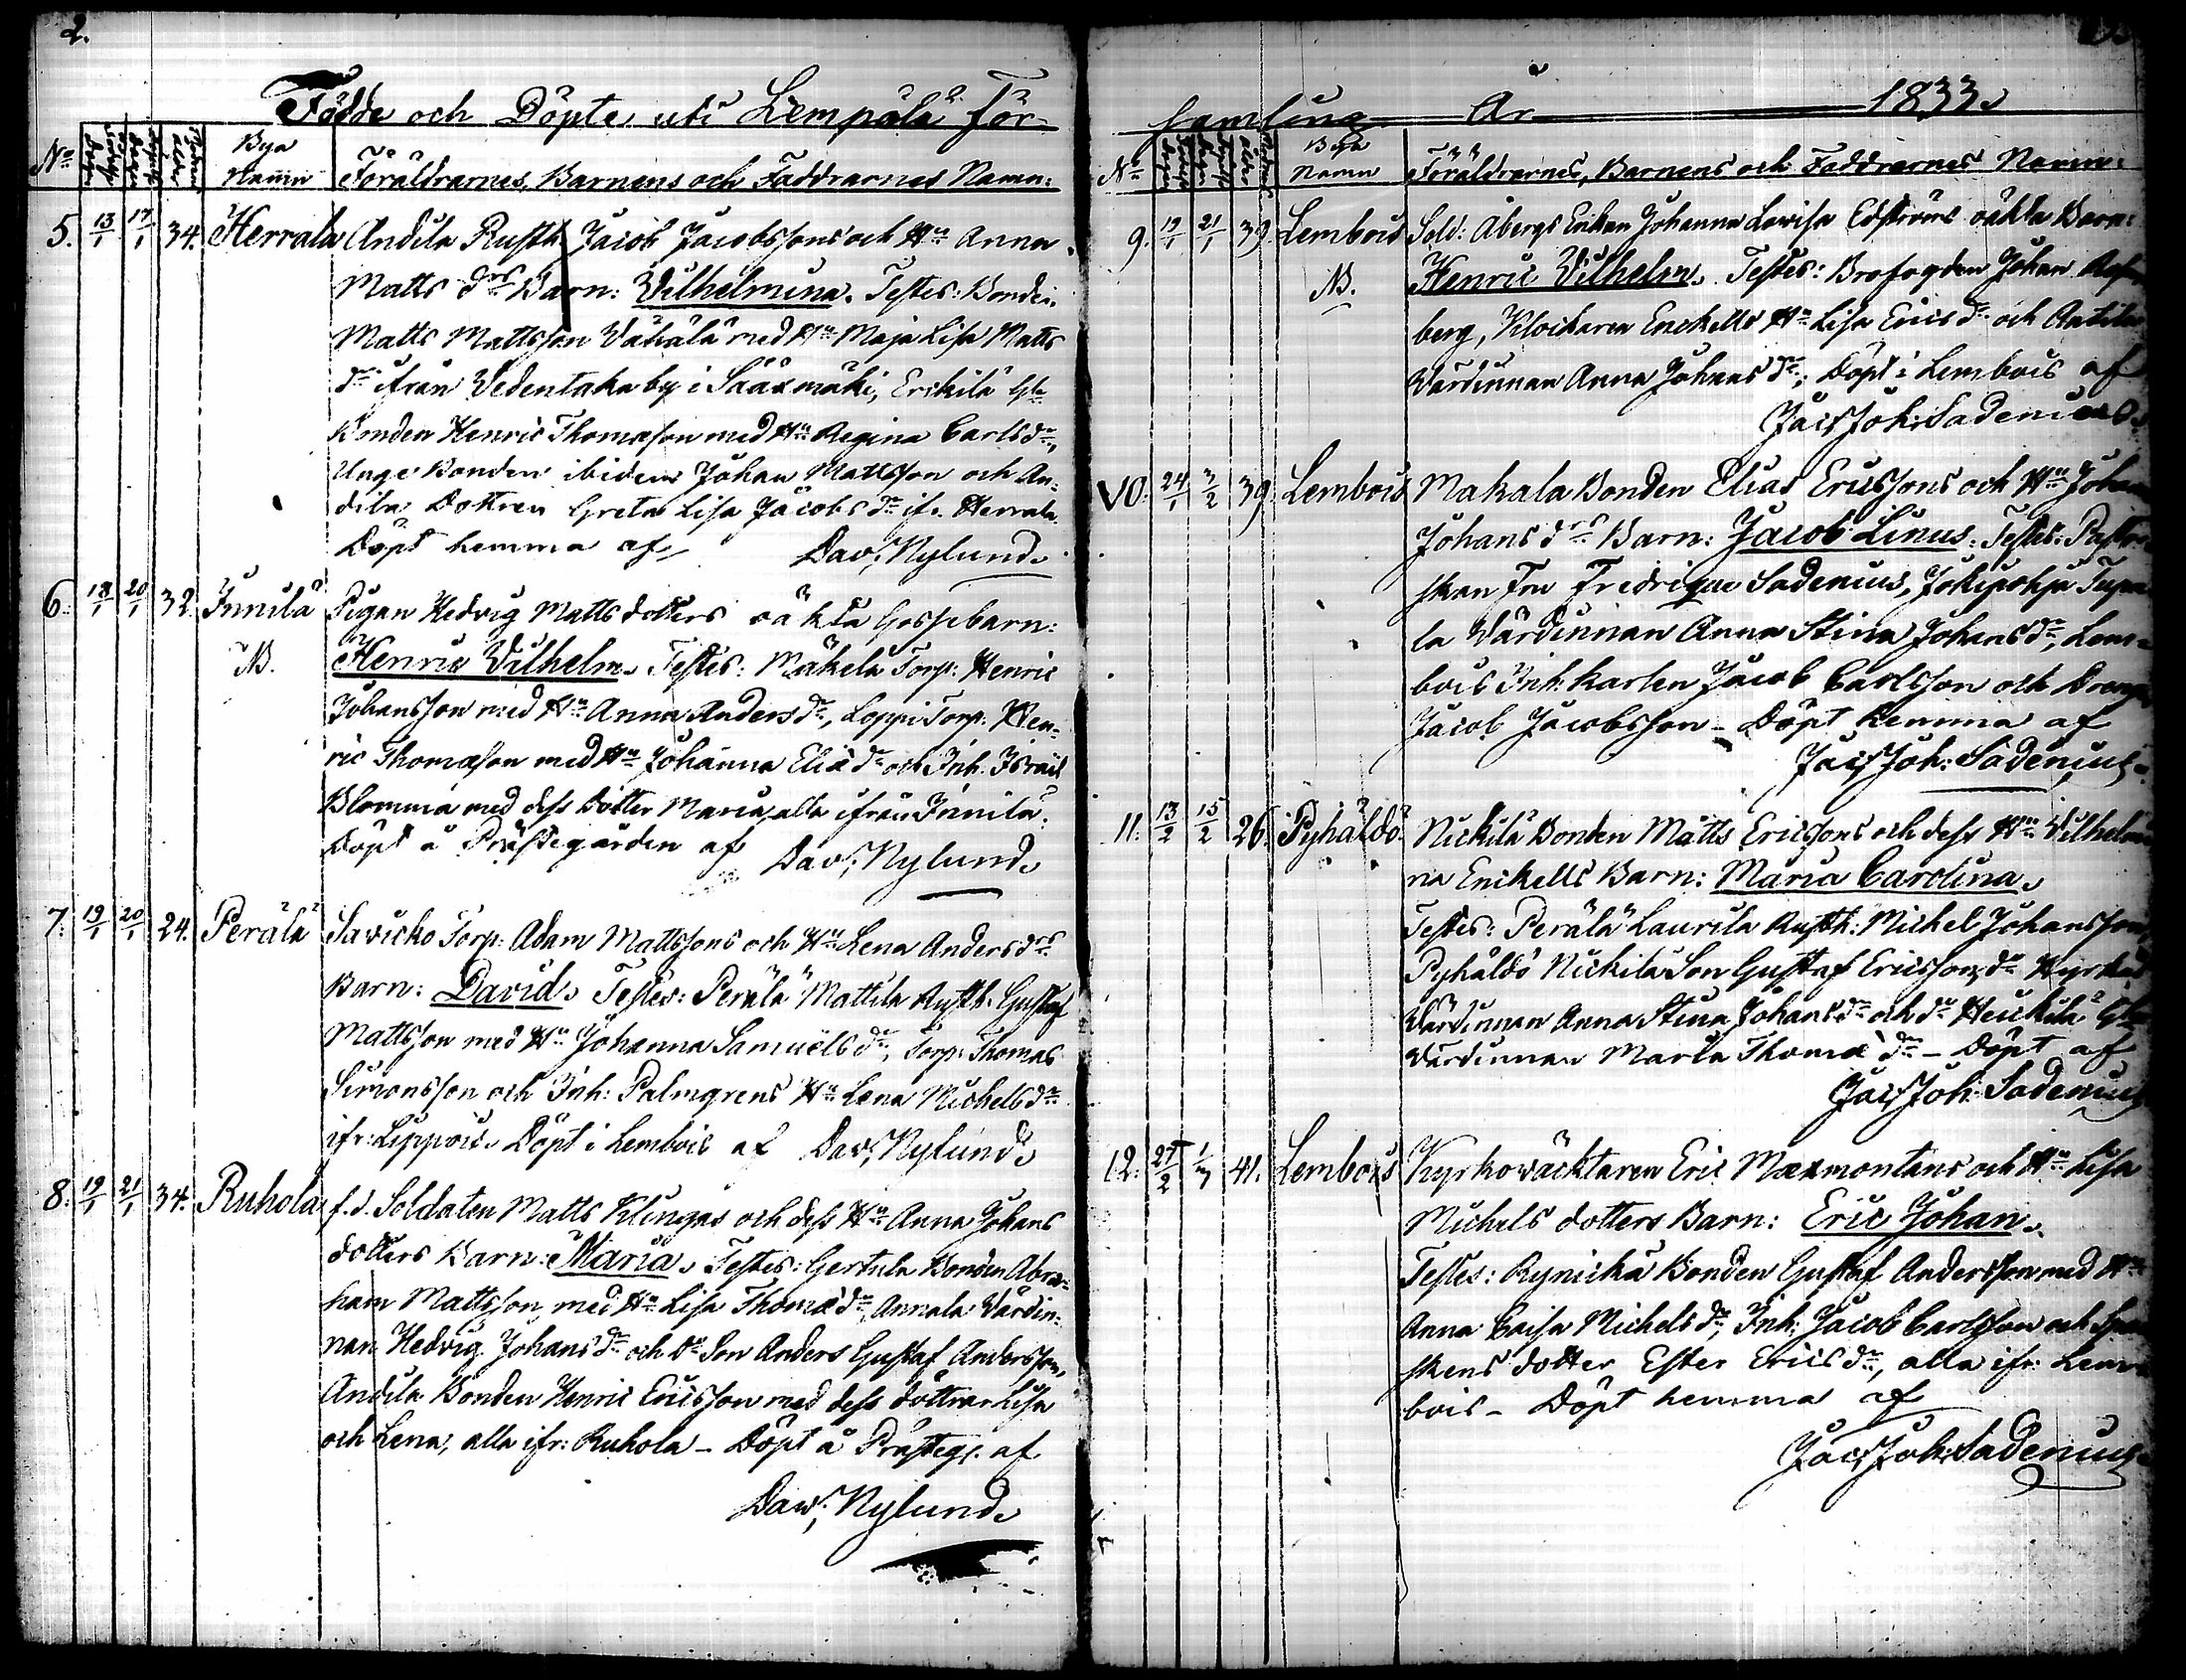 2.
Födde och Döpte uti Lempälä För-
No
Bya Namn
Föräldrarnes, Barnens och Faddrarnes Namn:
5. 13/1 17/1 34. Herrala Andila Rusth: Jacob Jacobssons och Hu Anna
Matts drs Barn: Vilhelmina. Testes: Bonden
Matts Mattsson Wähälä med Hu Maja Lisa Matts
dr ifrån Vedentaka by i Sääxmäki, Erikilä Gle
Bonden Henric Thomæson med Hu Regina Carlsdr,
Unge Bonden ibidem Johan Mattsson och An-
dila Dottren Greta Lisa Jacobs dr ifr. Herrala.
Döpt hemma af Dav; Nylund.
6. 18/1 20/1 32. Innilä Pigan Hedvig Matts dotters oäkta Gossebarn:
NB. Henric Vilhelm. Testes: Mäkelä Torp: Henric
Johansson med Hu Anna Anders dr, Loppi Torp: Hen-
ric Thomæson med Hu Johanna Eliæ dr och Inh: Israel
Blomma med dess Dotter Maria, alla ifrån Innilä.
Döpt å Prästegården af Dav; Nylund.
7. 19/1 20/1 24. Perälä Savicko Torp: Adam Mattssons och Hu Lena Anders drs
Barn: David. Testes: Perälä Mattila Rusth: Gustaf
Mattsson med Hu Johanna Samuels dr, Torp: Thomas
Simonsson och Inh: Palmgrens Hu Lena Michels dr
ifr: Lippois. Döpt i Lembois af Dav; Nylund.
8. 19/1 21/1 34. Ruhola f.d. Soldaten Matts Klingas och dess Hu Anna Johans
dotters Barn: Maria. Testes: Gertula Bonden Abra-
ham Mattsson med Hu Lisa Thomæ dr, Annala Värdin-
nan Hedvig Johans dr och do Son Anders Gustaf Andersson,
Andila Bonden Henric Ericsson med dess döttrar Lisa
och Lena, alla ifr: Ruhola - Döpt å Prästeg. af
Daw; Nylund.
samling År 1833.
No
Bya Namn
Föräldrarnes, Barnens och Faddrarnes Namn:
9. 19/1 21/1 39. Lembois Sold: Åbergs Enkan Johanna Lovisa Edströms oäkta Barn:
NB. Henric Vilhelm. Testes: Brofogden Johan
berg, Klockaren Enckells Hu Lisa Erics dr och Antila
Värdinnan Anna Johans dr, Döpt i Lembois af
Jac; Joh: Sadenius.
10. 24/1 3/2 39. Lembois Makala Bonden Elias Ericssons och Hu Johan
Johans drs Barn: Jacob Linus. Testes: Pasto
skan Fru Fredrique Sadenius, Jokipohja Tupa
la Värdinnan Anna Stina Johans dr, Lem-
bois Inh: karlen Jacob Carlsson och Dreng
Jacob Jacobsson - Döpt hemma af
Jac; Joh: Sadenius.
11. 13/2 15/2 26. Pyhäldö Nickilä Bonden Matts Ericssons och dess Hu Vilhelmi
na Enckells Barn: Maria Carolina.
Testes: Perälä Laurila Rusth: Michel Johansson,
Pyhäldö Nickilä Son Gustaf Ericsson, do
Värdinnan Anna Stina Johans dr och do Heickilä Gla
Värdinnan Maria Thomæ dr - Döpt af
Jac; Joh: Sadenius
12. 27/2 1/3 41. Lembois Kyrkowäcktaren Eric Maxmontans och Hu Lisa
Michels dotters Barn: Eric Johan.
Testes: Rynickä Bonden Gustaf Andersson med Hu
Anna Caisa Michels dr, Inh: Jacob Carlsson och
skens dotter Ester Erics dr, alla ifr: Lem
bois - Döpt hemma af
Jac; Joh: Sadenius.